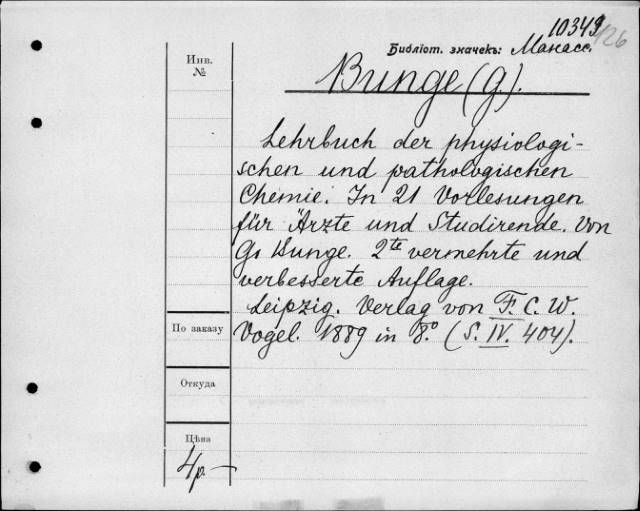 10349
126
Библіот. значекъ: Манасс.
Инв.
№
Bunge (G.).
Lehrbuch der physiologi-
schen und pathologischen
Chemie. In 21 Vorlesungen
für Ärzte und Studirende. Von
G. Bunge. 2te vermehrte und
verbesserte Auflage.
Leipzig. Verlag von F. C. W.
Vogel. 1889 in 8°. (S. IV. 404).
По заказу
Откуда
Цѣна
4р-